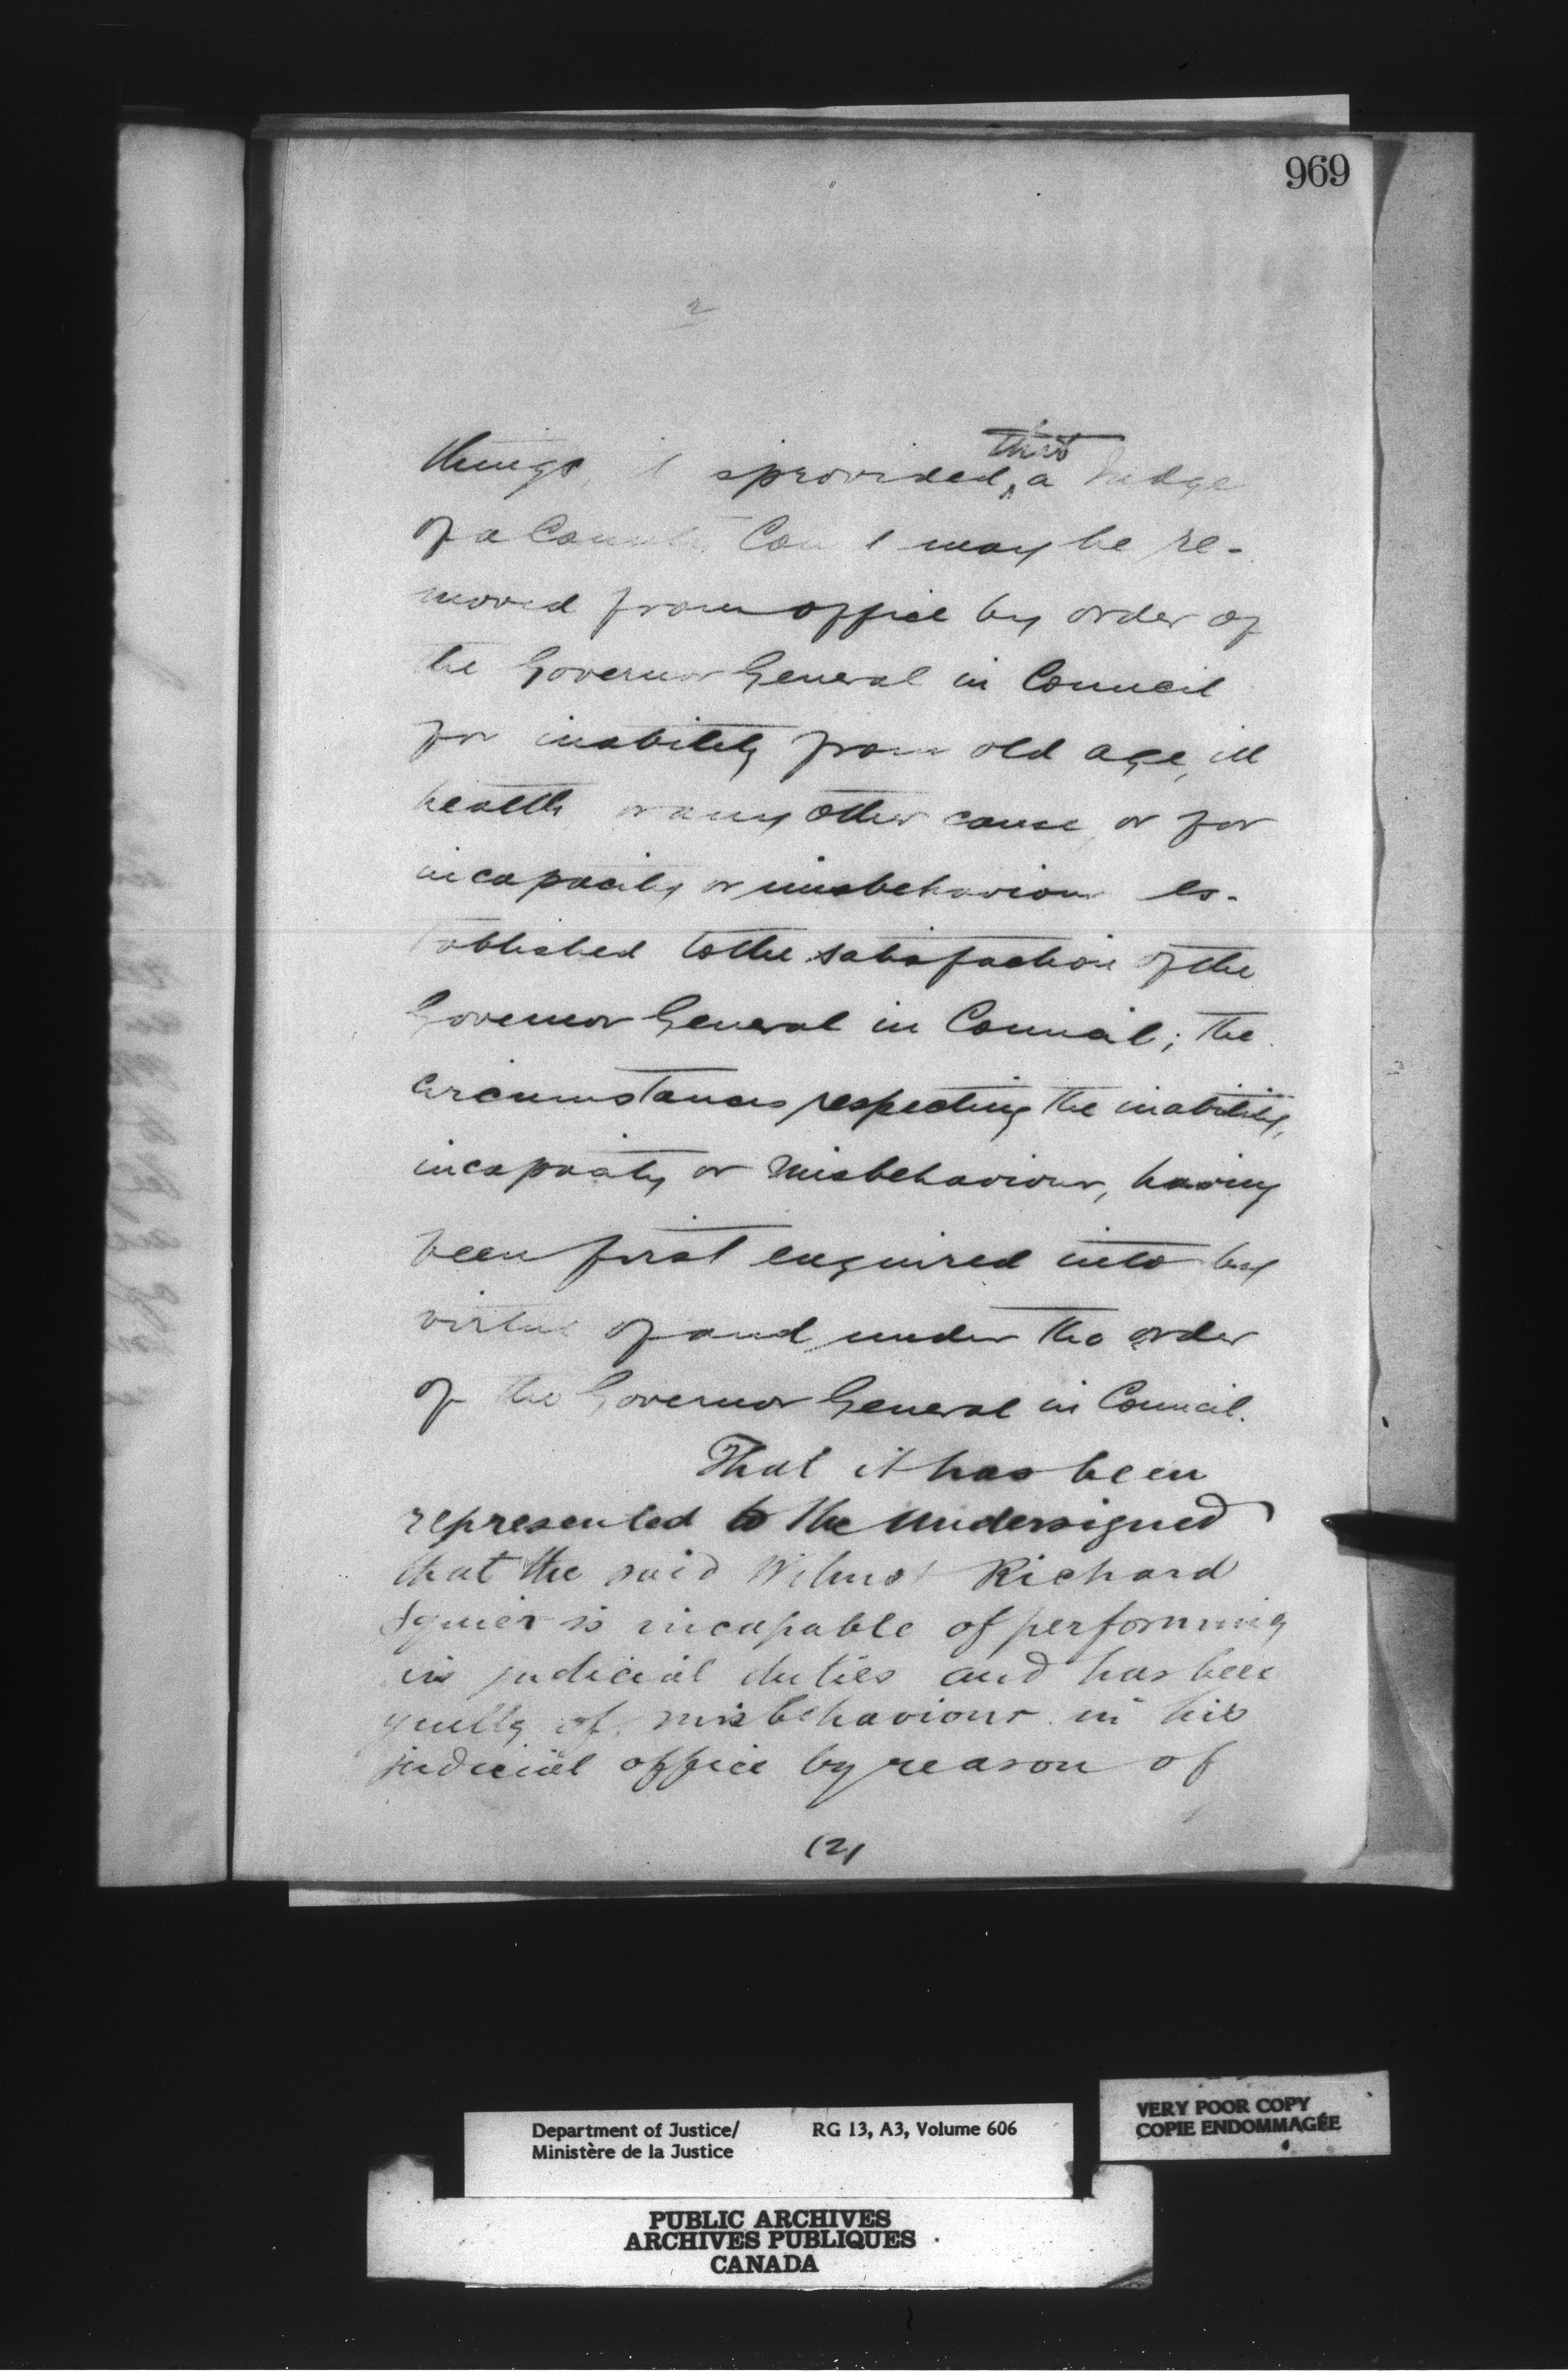 969
2
that
things, it is provided, a Judge
of a County Court may be re-
moved from office by order of
the Governor General in Council
for inability from old age, ill
health or any other cause, or for
incapacity or misbehaviour es-
tablished to the satisfaction of the
Governor General in Council; the
circumstances respecting the inability,
incapacity or misbehaviour, having
been first enquired into by
virtue of and under the order
of the Governor General in Council.
That it has been
represented to the undersigned
that the said Wilmot Richard
Squier is incapable of performing
his judicial duties and has been
guilty of misbehaviour in his
judicial office by reason of
(2)
VERY POOR COPY
COPIE ENDOMMAGÉE
Department of Justice/ RG 13, A3, Volume 606
Ministère de la Justice
PUBLIC ARCHIVES
ARCHIVES PUBLIQUES
CANADA